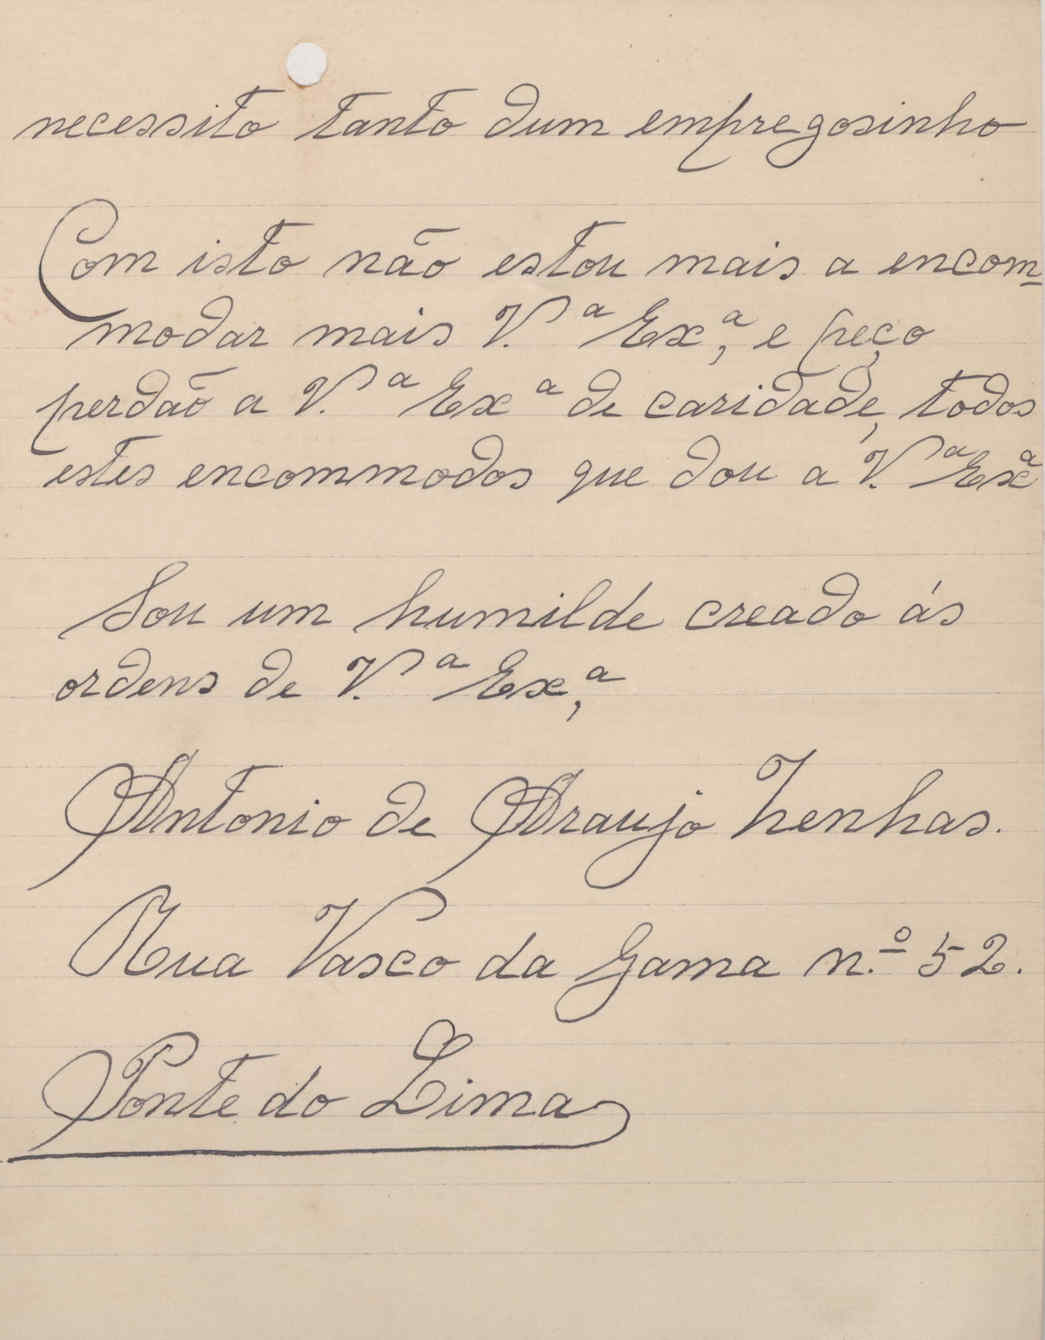 necessito tanto dum empregosinho
Com isto não estou mais a encom-
modar mais V.ª Ex,ª e peço
perdão a V.ª Exª de caridade, todos
estes encommodos que dou a V.ª Exª
Sou um humilde creado ás
ordens de V.ª Ex,ª
Antonio de Araujo Zenhas.
Rua Vasco da Gama n.º 52.
Ponte do Lima